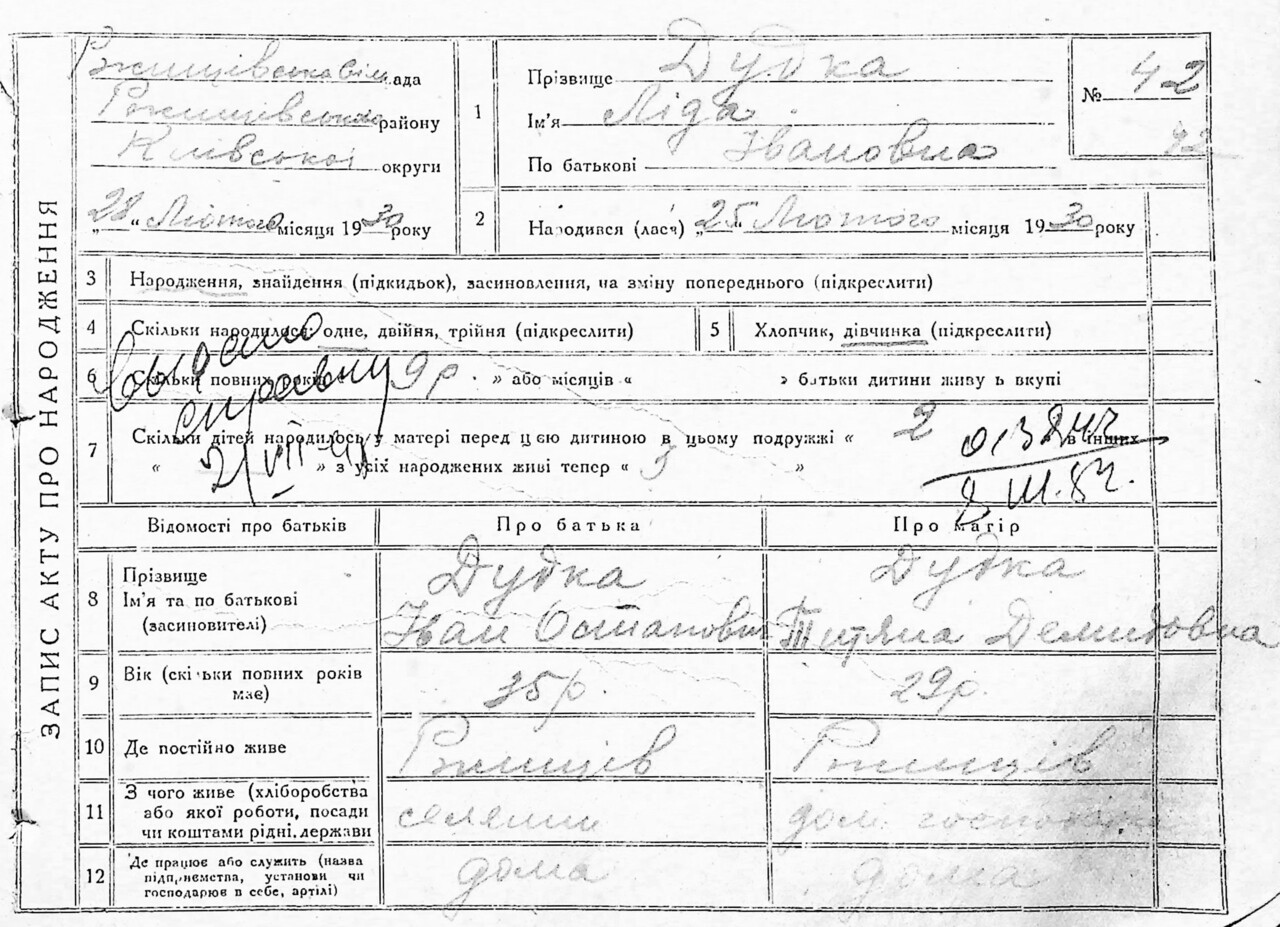 ЗАПИС АКТУ ПРО НАРОДЖЕННЯ
Ржищівська рада
Ржищівського району
Київської округи
„28“ Лютого місяця 1930 року
1 Прізвище Дудка
Ім'я Ліда
По батькові Івановна
№ 42
42
2 Народився (лася) „25“ Лютого місяця 1930 року
3 Народження, знайдення (підкидьок), засиновлення, на зміну попереднього (підкреслити)
4 Скільки народилося одне, двійня, трійня (підкреслити)
5 Хлопчик, дівчинка (підкреслити)
6 Скільки повних років 9 р. » або місяців « » батьки дитини живуть вкупі
7 Скільки дітей народилось у матері перед цією дитиною в цьому подружжі « 2 в інших
« » з усіх народжених живі тепер « 3 »
справку
21/VII-41
III.84.
Відомості про батьків
Про батька
Про матір
8 Прізвище
Ім'я та по батькові
(засиновителі)
Дудка
Іван Остапович
Дудка
Титяна Демидовна
9 Вік (скільки повних років
має)
35 р.
29 р.
10 Де постійно живе
Ржищів
Ржищів
11 З чого живе (хліборобства
або якої роботи, посади
чи коштами рідні, держави
селянин
дом.
12 Де працює або служить (назва
підприємства, установи чи
господарює в себе, артілі)
дома
дома